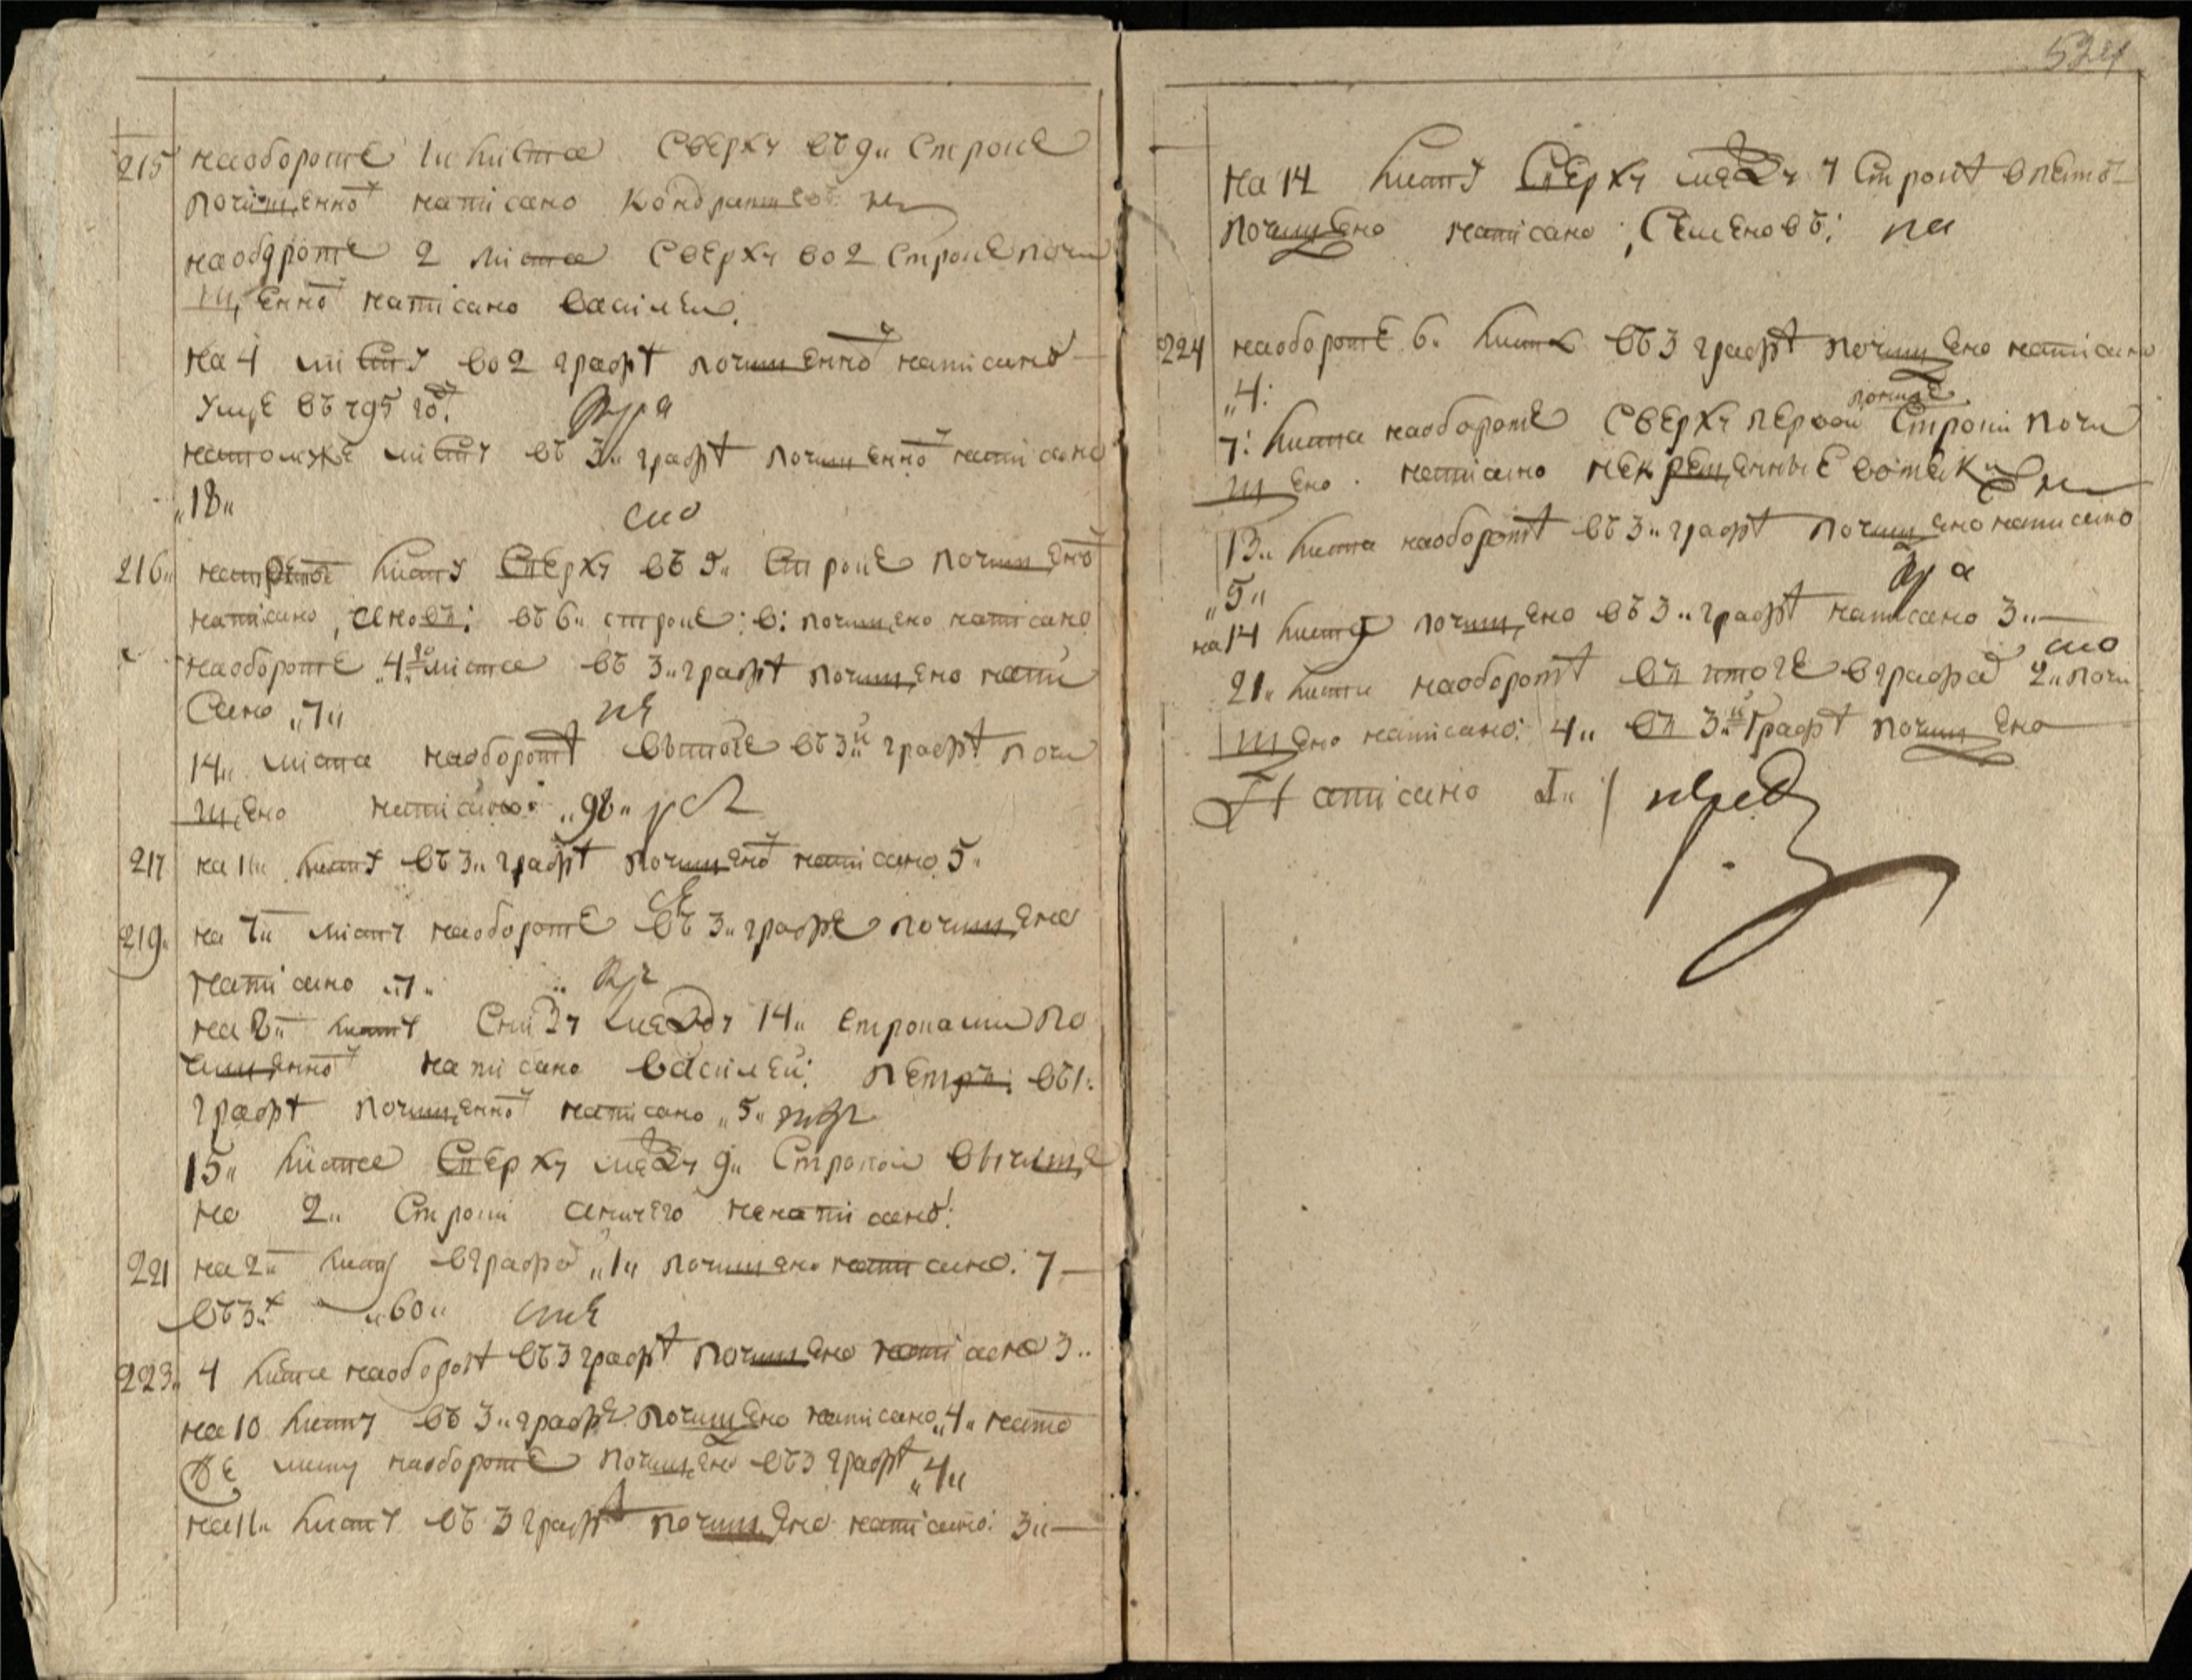 215 на обороте 1 листа сверху въ 9 строке
почищенно написано кондратьев
на обороте 2 листа сверху во 2 строке почи
щенно написано василеи
на 4 листу во 2 графѣ почищенно написано
умре въ 795 го
на томже листу въ 3 графѣ почищенно написано
„18„
сио
216„ на третье листу сверху въ 5„ строке почищено
написано, ановъ: въ 6„ строке: в: почищено написано
на обороте 4го листа въ 3„ графѣ почищено напи
сано „7„
14„ листа на оборотѣ въ итоге въ 3й графѣ почи
щено написано: „98„
217 на 11„ листу въ 3„ графѣ почищено написано 5„
219„ на 7„ листу на обороте въ 3„ графе почищено
написано „7„
на 8„ листу снизу между 14„ строками по
чищенно написано василей: петръ: въ 1:
графѣ почищенно написано „5„
15„ листа сверху между 9„ строкой вычище
но 2„ строки а ничего не написано:
221 на 2„ листу в графе „1„ почищено написано: 7
въ 3й „60„
223„ 4 листа на оборотѣ въ 3 графѣ почищено написано 3„
на 10 листу въ 3„ графе почищено написано „4„ на то
же листу на обороте почищено въ 3 графѣ „4„
на 11„ листу въ 3 графѣ почищено написано: 3„
524
на 14 листу сверху между 7 строкѣ в лето
почищено написано: Семеновъ:
224 на обороте 6„ листа въ 3 графѣ почищено написано
„4:
7: листа на обороте сверху первой строки почи
щено написано некрещенные вотяки
13„ листа на оборотѣ въ 3„ графѣ почищено написано
„5„
на 14 листу почищено въ 3„ графѣ написано 3„
сио
21„ листа на оборотѣ въ итоге в графе 2„ почи
щено написано: 4„ въ 3й графѣ почищено
Написано 1„